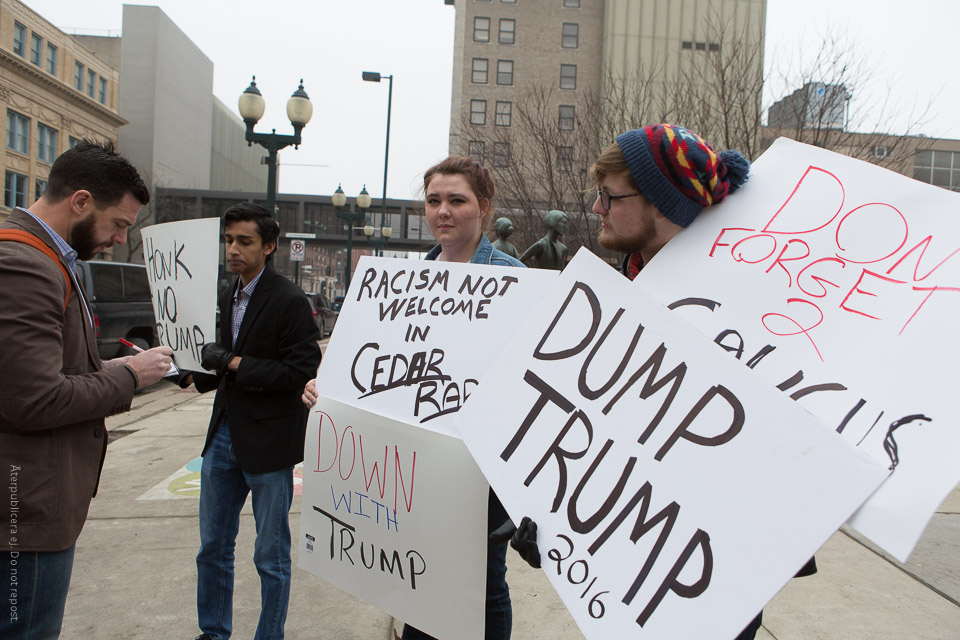 HONK
NO
TRUMP
RACISM NOT
WELCOME
IN
CEDAR
RAP
DOWN
WITH
TRUMP
DUMP
TRUMP
2016
DON
FORGET
2
CAUCUS
Återpublicera ej. Do not repost.